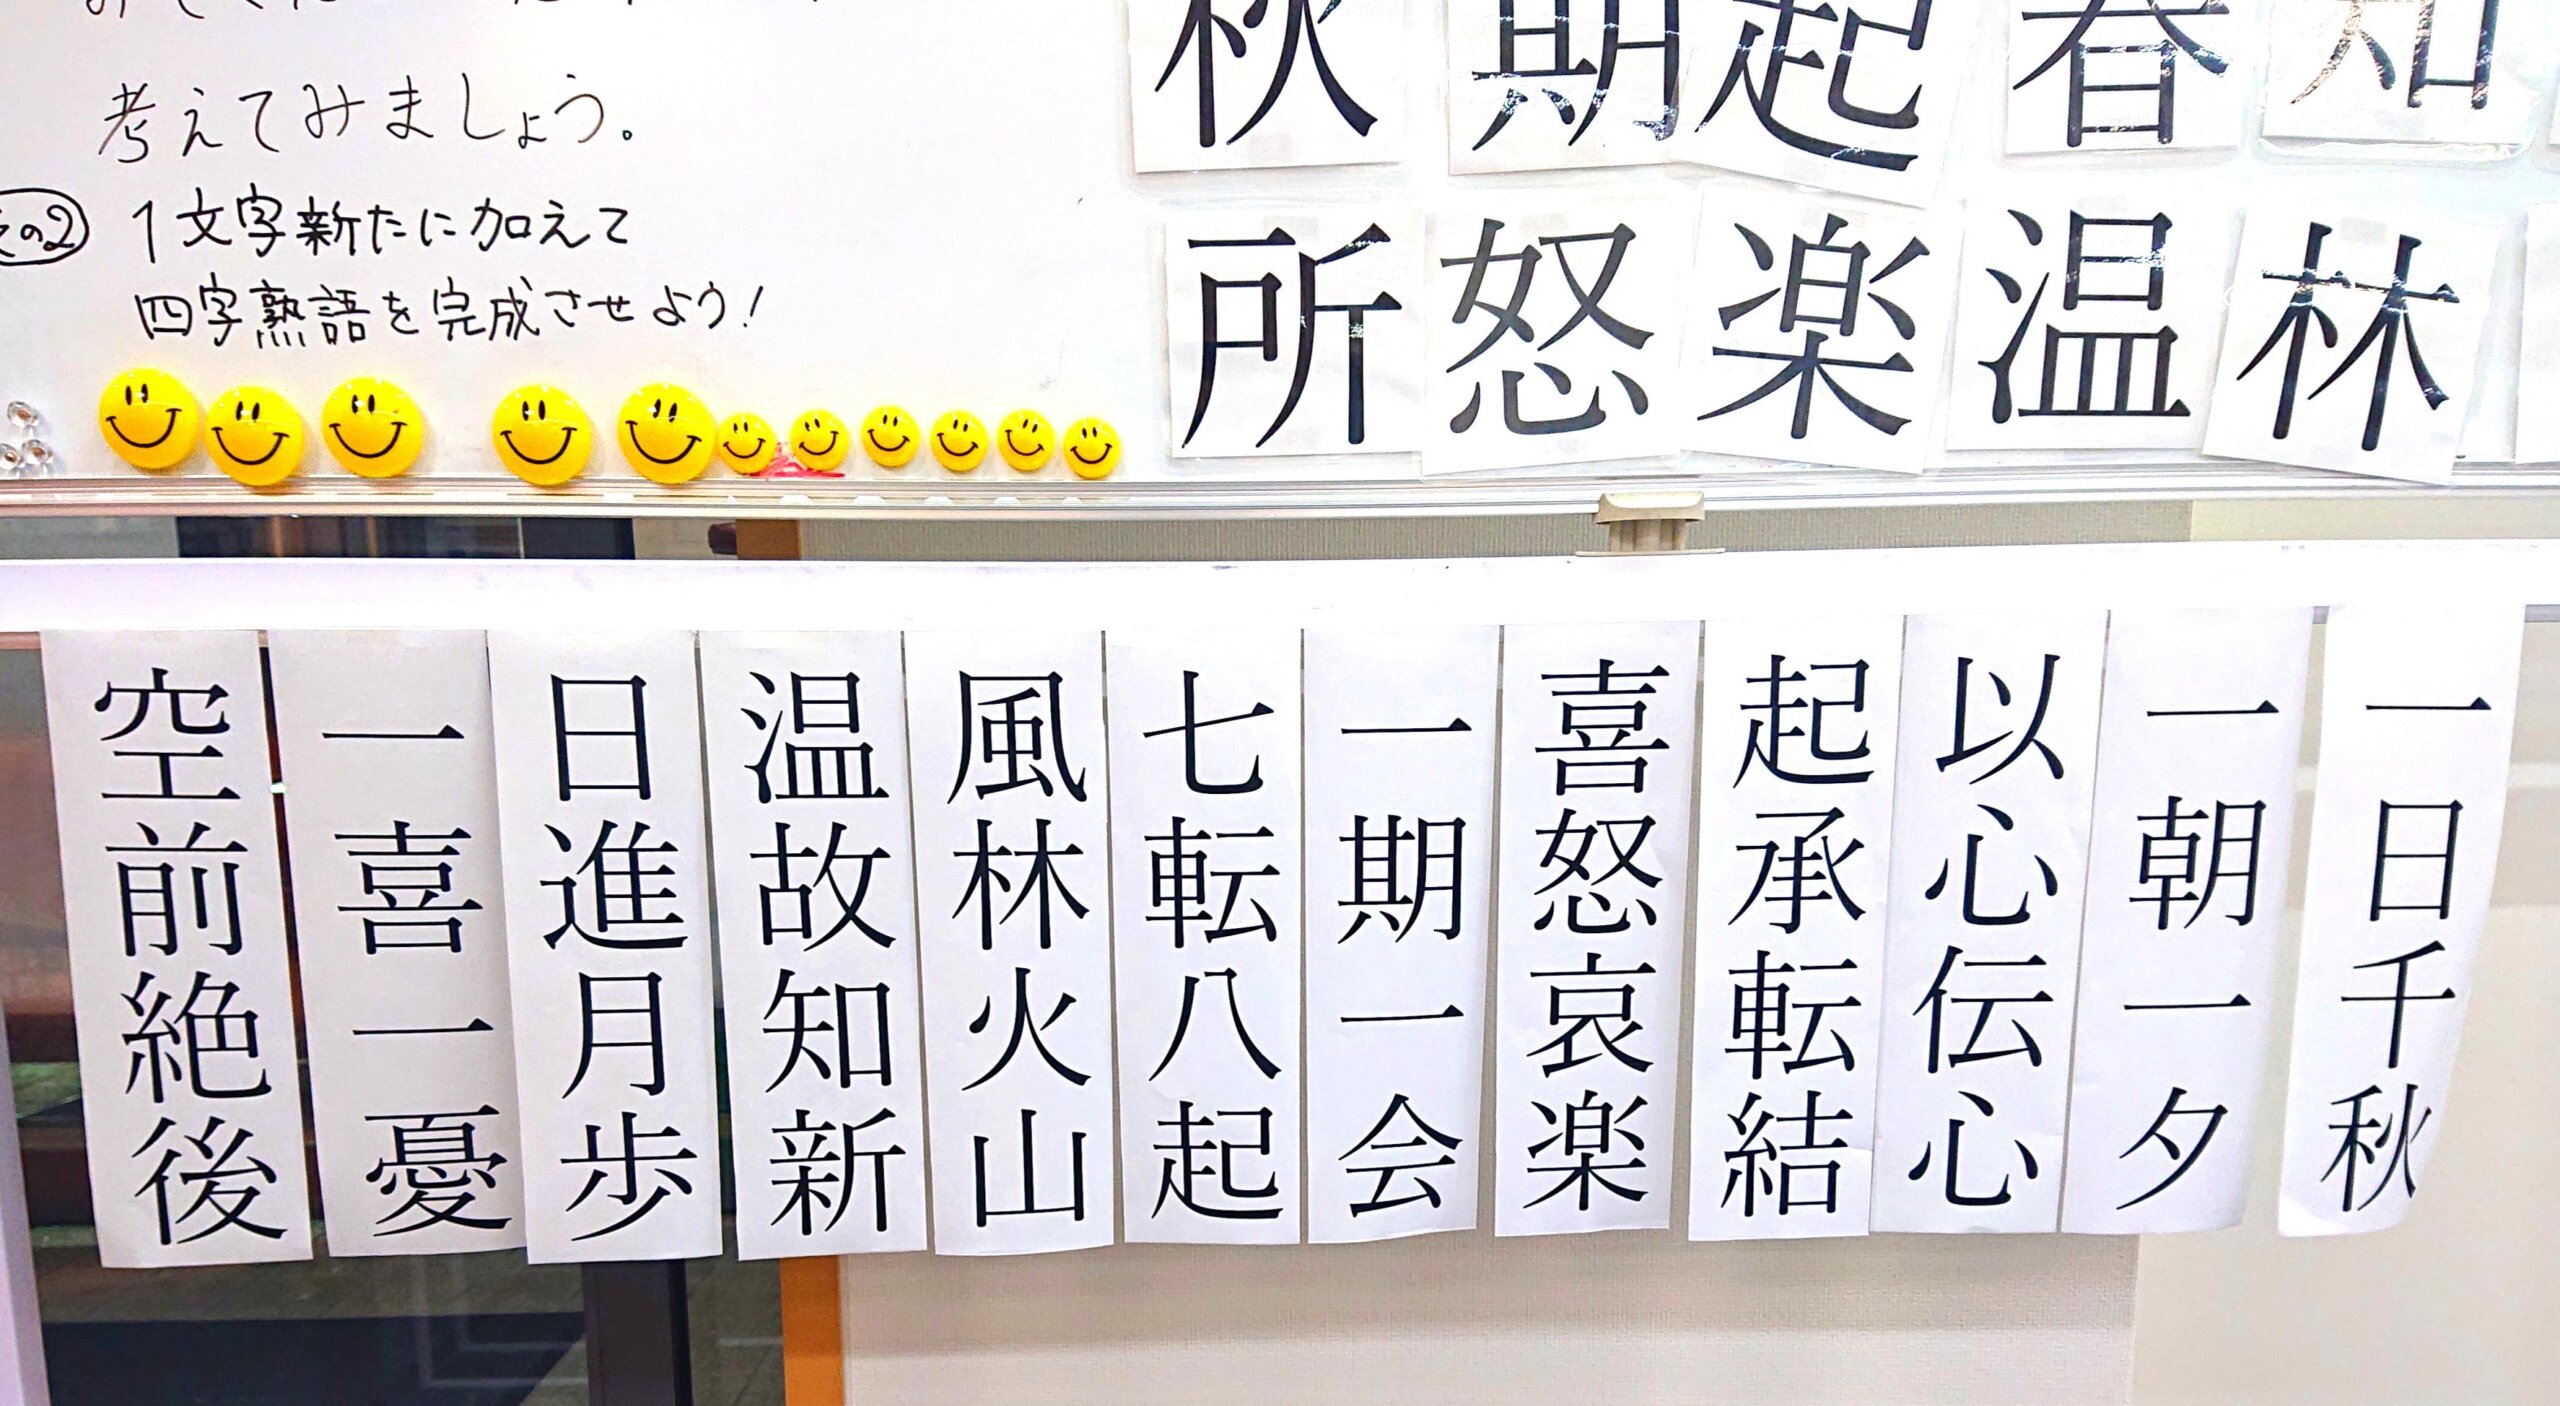 考えてみましょう。
その2 1文字新たに加えて
四字熟語を完成させよう!
秋 期 起 春 知
所 怒 楽 温 林
一日千秋
一朝一夕
以心伝心
起承転結
喜怒哀楽
一期一会
七転八起
風林火山
温故知新
日進月歩
一喜一憂
空前絶後